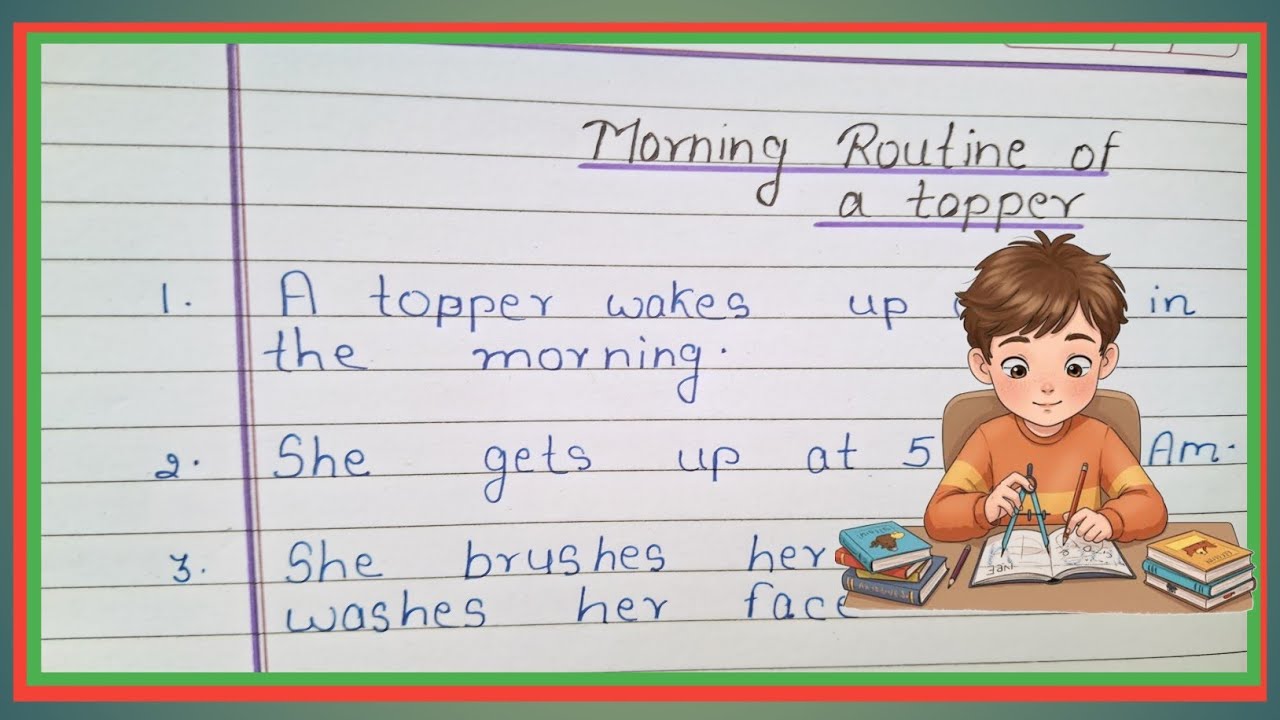 Morning Routine of
a topper
1. A topper wakes up in
the morning.
2. She gets up at 5 Am.
3. She brushes her
washes her face